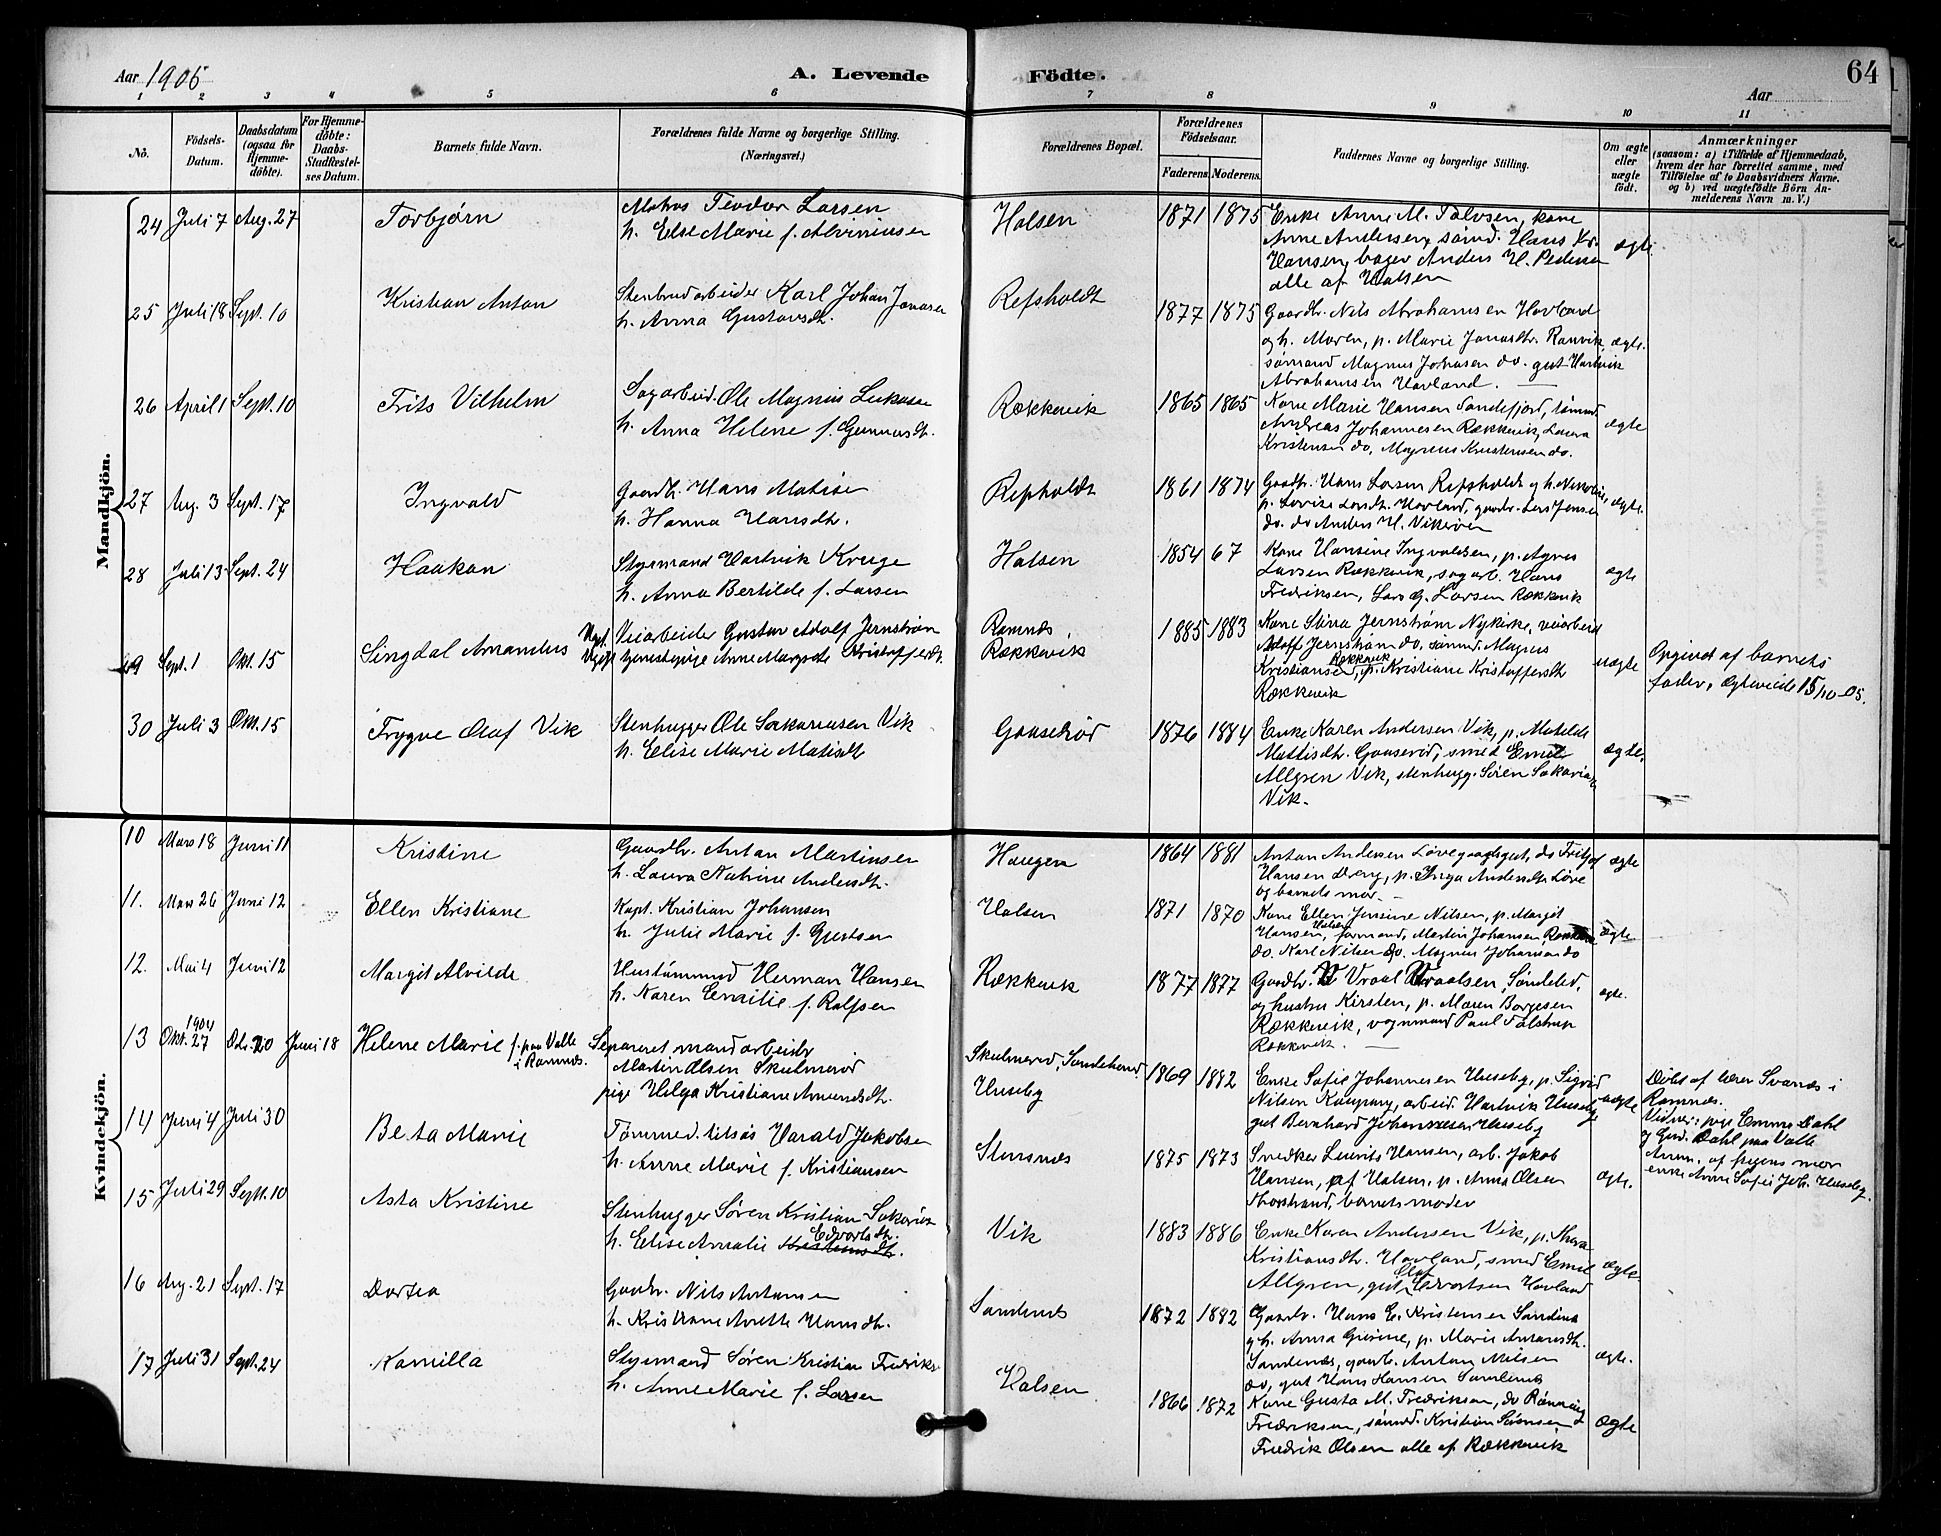 Aar 1905
A. Levende
Födte.
64
Aar
1 2 3 4 5 6 7 8 9 10 11
No.
Födsels-
Datum.
Daabsdatum
(ogsaa for
Hjemme-
döbte).
For Hjemme-
döbte:
Daabs-
Stadfestel-
ses Datum.
Barnets fulde Navn.
Forældrenes fulde Navne og borgerlige Stilling.
(Næringsvei.)
Forældrenes Bopæl.
Forældrenes
Födselsaar.
Faderens. Moderens.
Faddernes Navne og borgerlige Stilling.
Om ægte
eller
uægte
födt.
Anmærkninger
(saasom: a) i Tilfælde af Hjemmedaab,
hvem der har forrettet samme, med
Tilföielse af to Daabsvidners Navne.
og b) ved uægtefödte Börn An-
melderens Navn m. V.)
Mandkjön.
24 Juli 7 Aug. 27 Torbjørn
Matros Teodor Larsen
h. Else Marie f. Alviniusen
Halsen 1871 1875
Enke Anne M. Talvsen, kone
Anne Andersen, sømd. Hans Kr.
Hansen, bager Anders H. Pedersen
alle af Halsen
ægte
25 Juli 18 Sept. 10 Kristian Anton
Stenbrudarbeider Karl Johan Jonasen
h. Anna Gustavsdtr.
Refsholdt 1877 1875
Gaardbr. Nils Abrahamsen Hovland
og h. Maren, p. Marie Jonasdtr. Ranvik,
sømand Magnus Johnsen do. gut Hartvik
Abrahamsen Hovland.
ægte.
26 April 1 Sept. 10 Frits Vilhelm
Sagarbeid. Ole Magnus Lukasse
h. Anna Helene f. Gunnarsdtr.
Rækkevik 1865 1865
Kone Marie Hansen Sandefjord, sømnd
Andreas Johannesen Rækkevik, Laura
Kristensen do, Magnus Kristensen do.
ægte
27 Aug. 3 Sept. 17 Ingvald
Gaardbr. Hans Matisen
h. Hanna Hansdtr.
Refsholdt 1861 1874
Gaardbr. Hans Larsen Refsholdt og h. Nikoline,
p. Lovise Larsdtr. Hovland, gaardbr. Lars Jensen
do. do Anders H. Vikeröen
ægte.
28 Juli 13 Sept. 24 Haakon
Styrmand Hartvik Kruge
h. Anna Bertilde f. Larsen
Halsen 1854 67
Kone Hansine Ingvaldsen, p. Agnes
Larsen Rækkevik, sagarb. Hans
Fredriksen, Lars G. Larsen Rækkevik
ægte
29 Sept. 1 Okt. 15 Singdal Amandus
Ugift Veiarbeider Gustav Adolf Jernstrøm
Ugift tjenestepige Anne Margrete Kristoffersdtr.
Ramnæs,
Rækkevik
1885 1883
Kone Stina Jernstrøm Nykirke, veiarbeid
Adolf Jernstrøm do, sømnd. Magnus
Kristiansen Rækkevik, p. Kristiane Kristoffersdtr
Rækkevik
uægte
Opgivet af barnets
fader, ægteviede 15/10-05.
30 Juli 3 Okt. 15 Trygve Olaf Vik
Stenhugger Ole Sakariasen Vik
h. Elise Marie Matisdtr
Gaaserød 1876 1884
Enke Karen Andersen Vik, p. Matilde
Mattisdtr. Gaaserød, smed Emil
Allgren Vik, stenhugg. Søren Sakarias
Vik.
ægte.
Kvindekjön.
10 Mars 18 Juni 11 Kristine
Gaardbr. Anton Martinsen
h. Laura Katrine Andersdtr.
Haugen 1864 1881
Anton Andersen Løve gaardgut, do Fritjof
Hansen Eeng, p. Inga Andersdtr. Løve
og barnets mor.
ægte
11. Mars 26 Juni 12 Ellen Kristiane
Kapt. Kristian Johansen
h. Julie Marie f. Gjertsen
Halsen 1871 1870
Kone Ellen Jensine Nilsen, p. Margit
Hansen, Halsen, formand, Martin Johansen,
do. Karl Nilsen do. Magnus Johansen do
ægte
12. Mai 4 Juni 12 Margit Alvilde
Hustömmmd Herman Hansen
h. Karen Emilie f. Rolfsen
Rækkevik 1877 1877
Gaardbr. Vraal Vraalsen, Søndeled,
og hustru Kirsten, p. Maren Borgesen
Rækkevik, vognmand Paul Falstrup
Rækkevik.
ægte.
13 1904 Okt. 27 20 Juni 18 Helene Marie f. paa Valle
i Ramnæs.
Separeret mand arbeidr
Martin Olsen Skulmerød
pige Helga Kristiane Amundsdtr.
Skulmerød, Sandeherred.
Huseby
1869 1882
Enke Sofie Johannesen Huseby, p. Sigrid
Nilsen Kaupang, arbeid. Hartvik Huseby
gut Bernhard Johannesen Huseby
uægte
Döbt af lærer Svanæs i
Ramnæs.
Vidner: pige Emma Dahl
og Gud. Dahl paa Valle
Anm. af pigens mor
enke Anne Sofie Joh. Huseby.
14 Juni 4 Juli 30 Berta Marie
Tømmermd. Harald Jakobsen
h. Anne Marie f. Kristiansen
Stusnæs 1875 1873
Snedker Laurits Hansen, arb. Jakob
Hansen, af Halsen, p. Anna Olsen
Thorstrand, barnets moder
ægte.
15 Juli 29 Sept. 10 Asta Kristine
Stenhugger Søren Kristian Sakarias
h. Elise Amalie Edvartsdtr.
Vik 1883 1886
Enke Karen Andersen Vik, p. Thora
Kristiansdtr. Hovland, smed Emil
Allgren, gut Olaf Edvartsen Hovland
ægte
16 Aug. 21 Sept. 17 Dortea
Gaardbr. Nils Antonsen
h. Kristiane Anette Hansdtr.
Sandenæs 1872 1882
Gaardbr. Hans E. Kristensen Sandenæs
og h. Anna Gurine, p. Marie Amandsdtr.
Sandenæs, gaardb. Anton Nilsen
do, gut Hans Hansen Sandenæs
ægte.
17 Juli 31 Sept. 24 Kamilla
Styrmand Søren Kristian Fredriks
h. Anne Marie f. Larsen
Halsen 1866 1872
Kone Gusta M. Fredriksen, do Rønnaug
Fredriksen, sømnd. Kristian Sørensen
Fredrik Olsen alle af Rækkevik
ægte